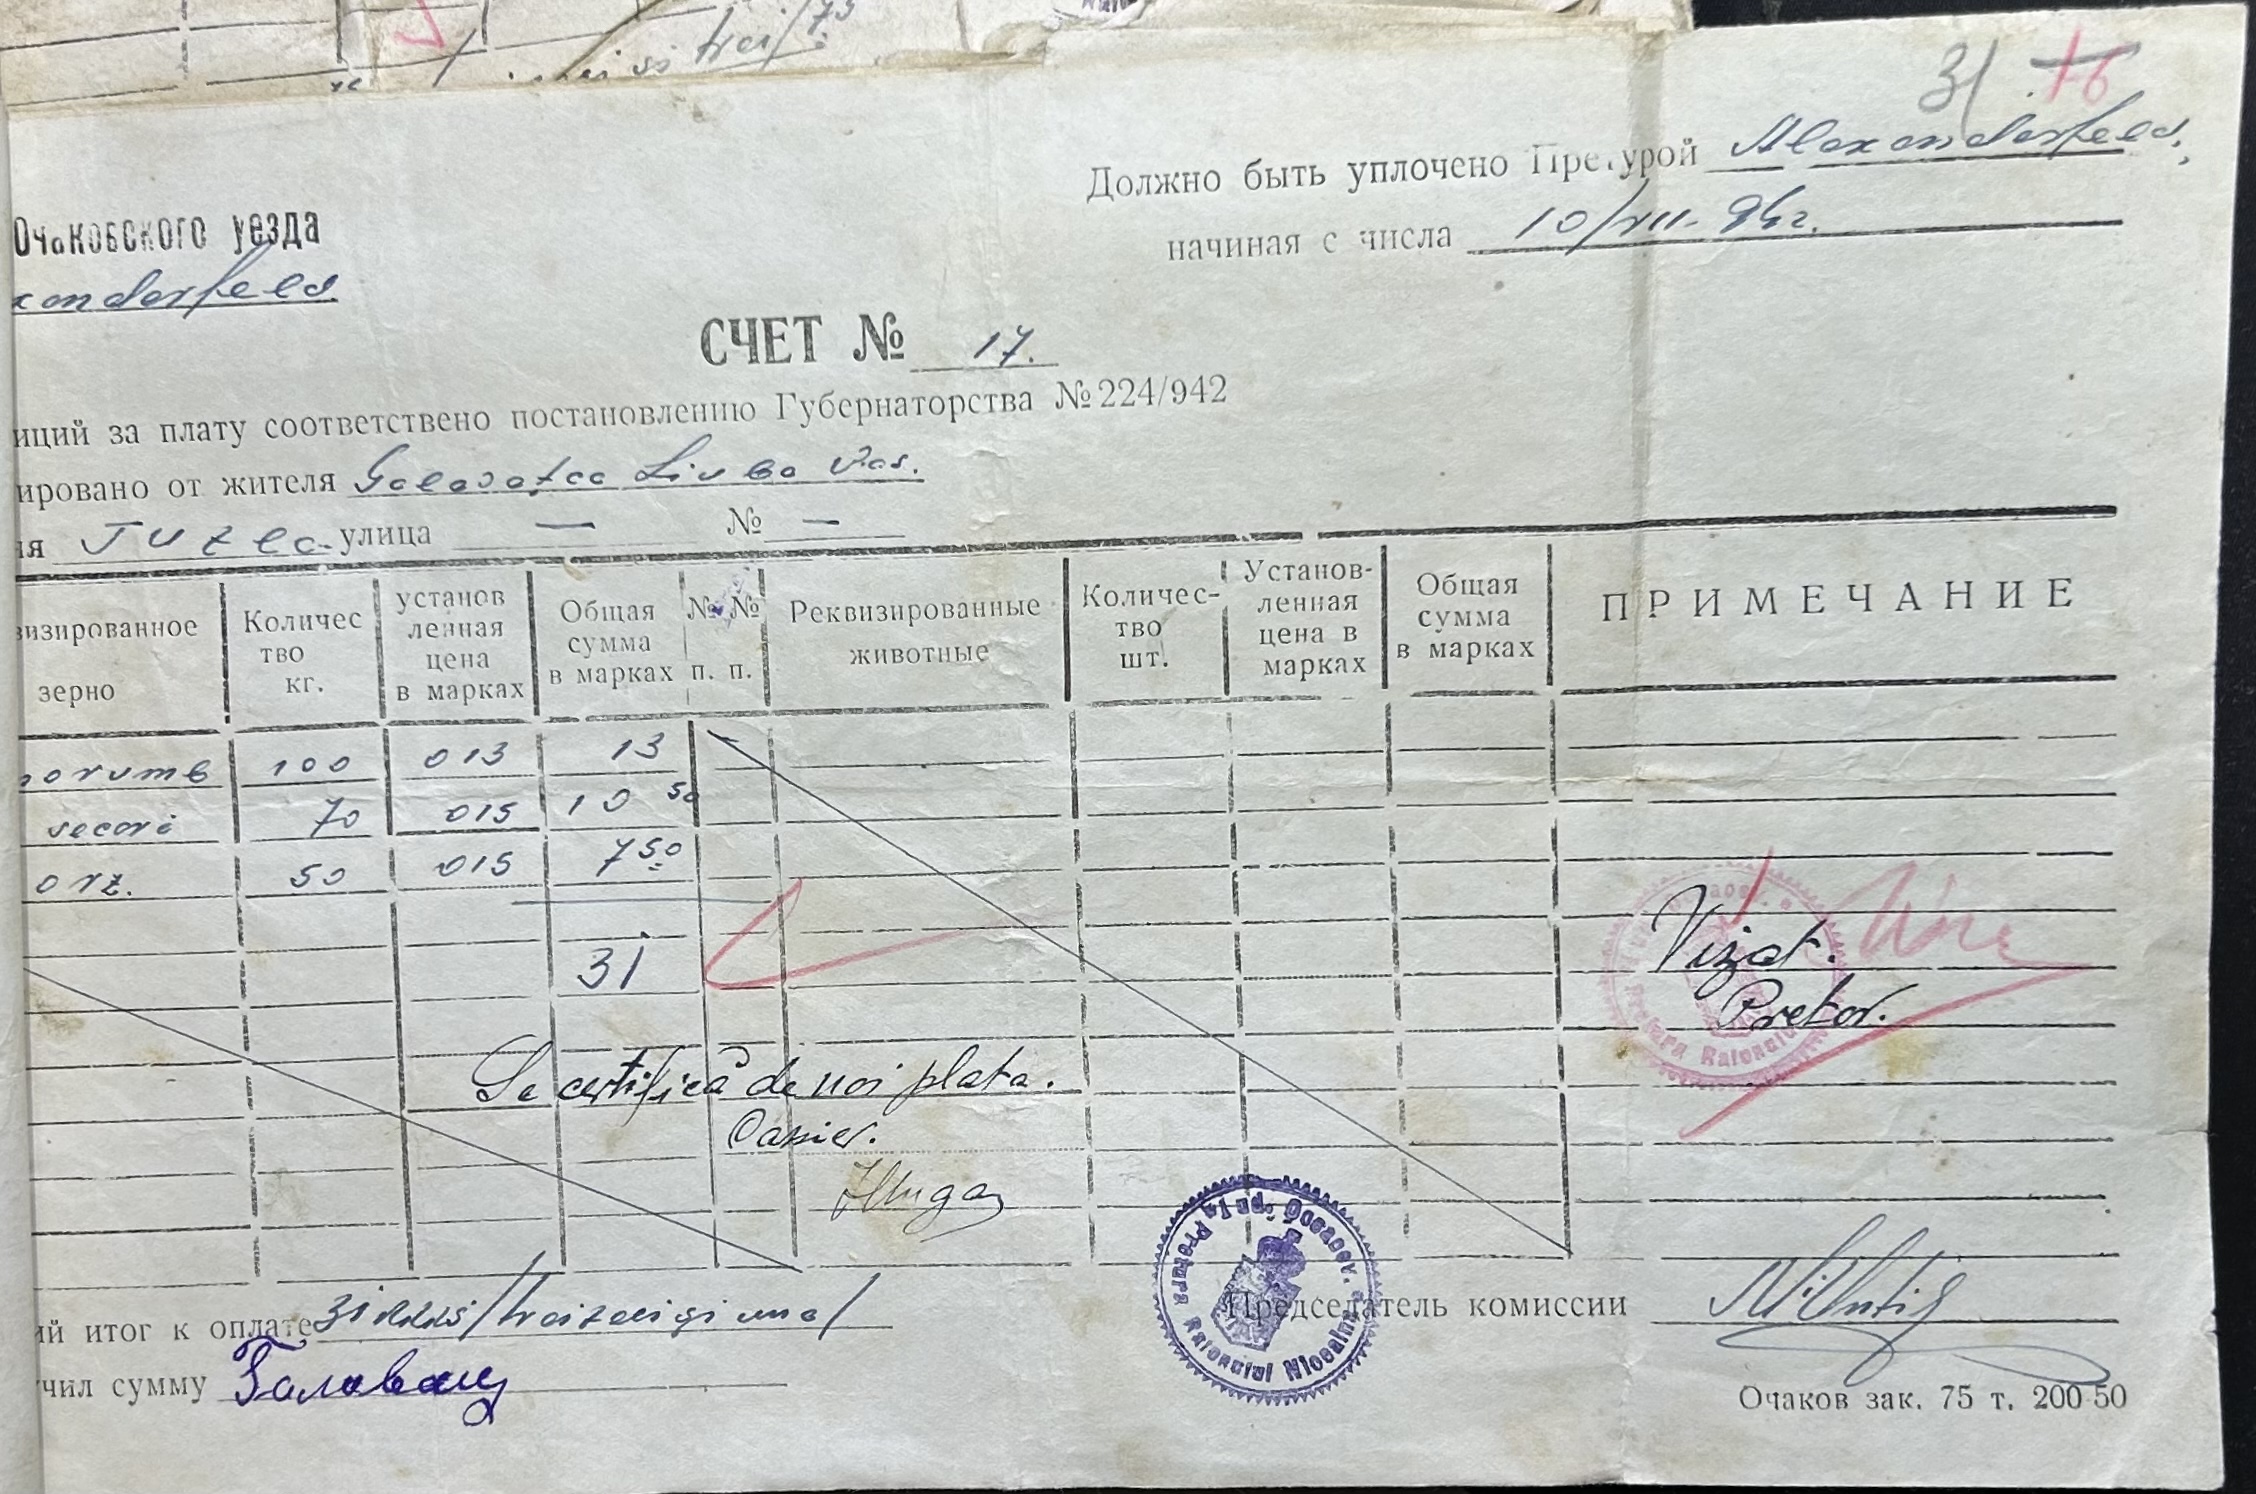 31 16
Должно быть уплочено Претурой Alexanderfeld.
Очаковского уезда
начиная с числа 10/VII-94г.
xanderfeld.
СЧЕТ № 17.
иций за плату соответствено постановлению Губернаторства № 224/942
ировано от жителя Liuba Vas.
ия Tuzla улица — № —
визированное зерно
Количес тво кг.
установ ленная цена в марках
Общая сумма в марках
№ № п. п.
Реквизированные животные
Количес- тво шт.
Установ- ленная цена в марках
Общая сумма в марках
ПРИМЕЧАНИЕ
porumb 100 013 13
secară 70 015 10 50
orz. 50 015 7 50
31
Vizat.
Pretor.
Se certifică de noi plata.
Casier.
ий итог к оплате 31 /treizeci și una/
Председатель комиссии
чил сумму
Pretura Raionului
Jud. Oceacov
Pretura Raionului
Очаков зак. 75 т. 200-50